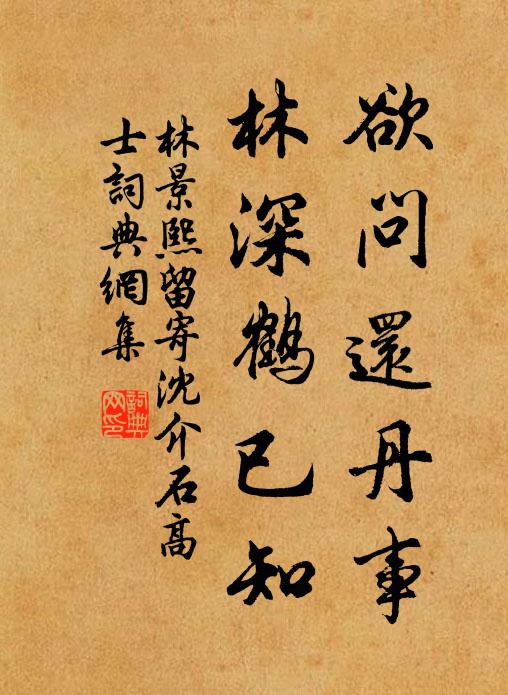 欲問還丹事
林深鶴已知
林景熙留寄沈介石高
士詞典網集
詞典网印